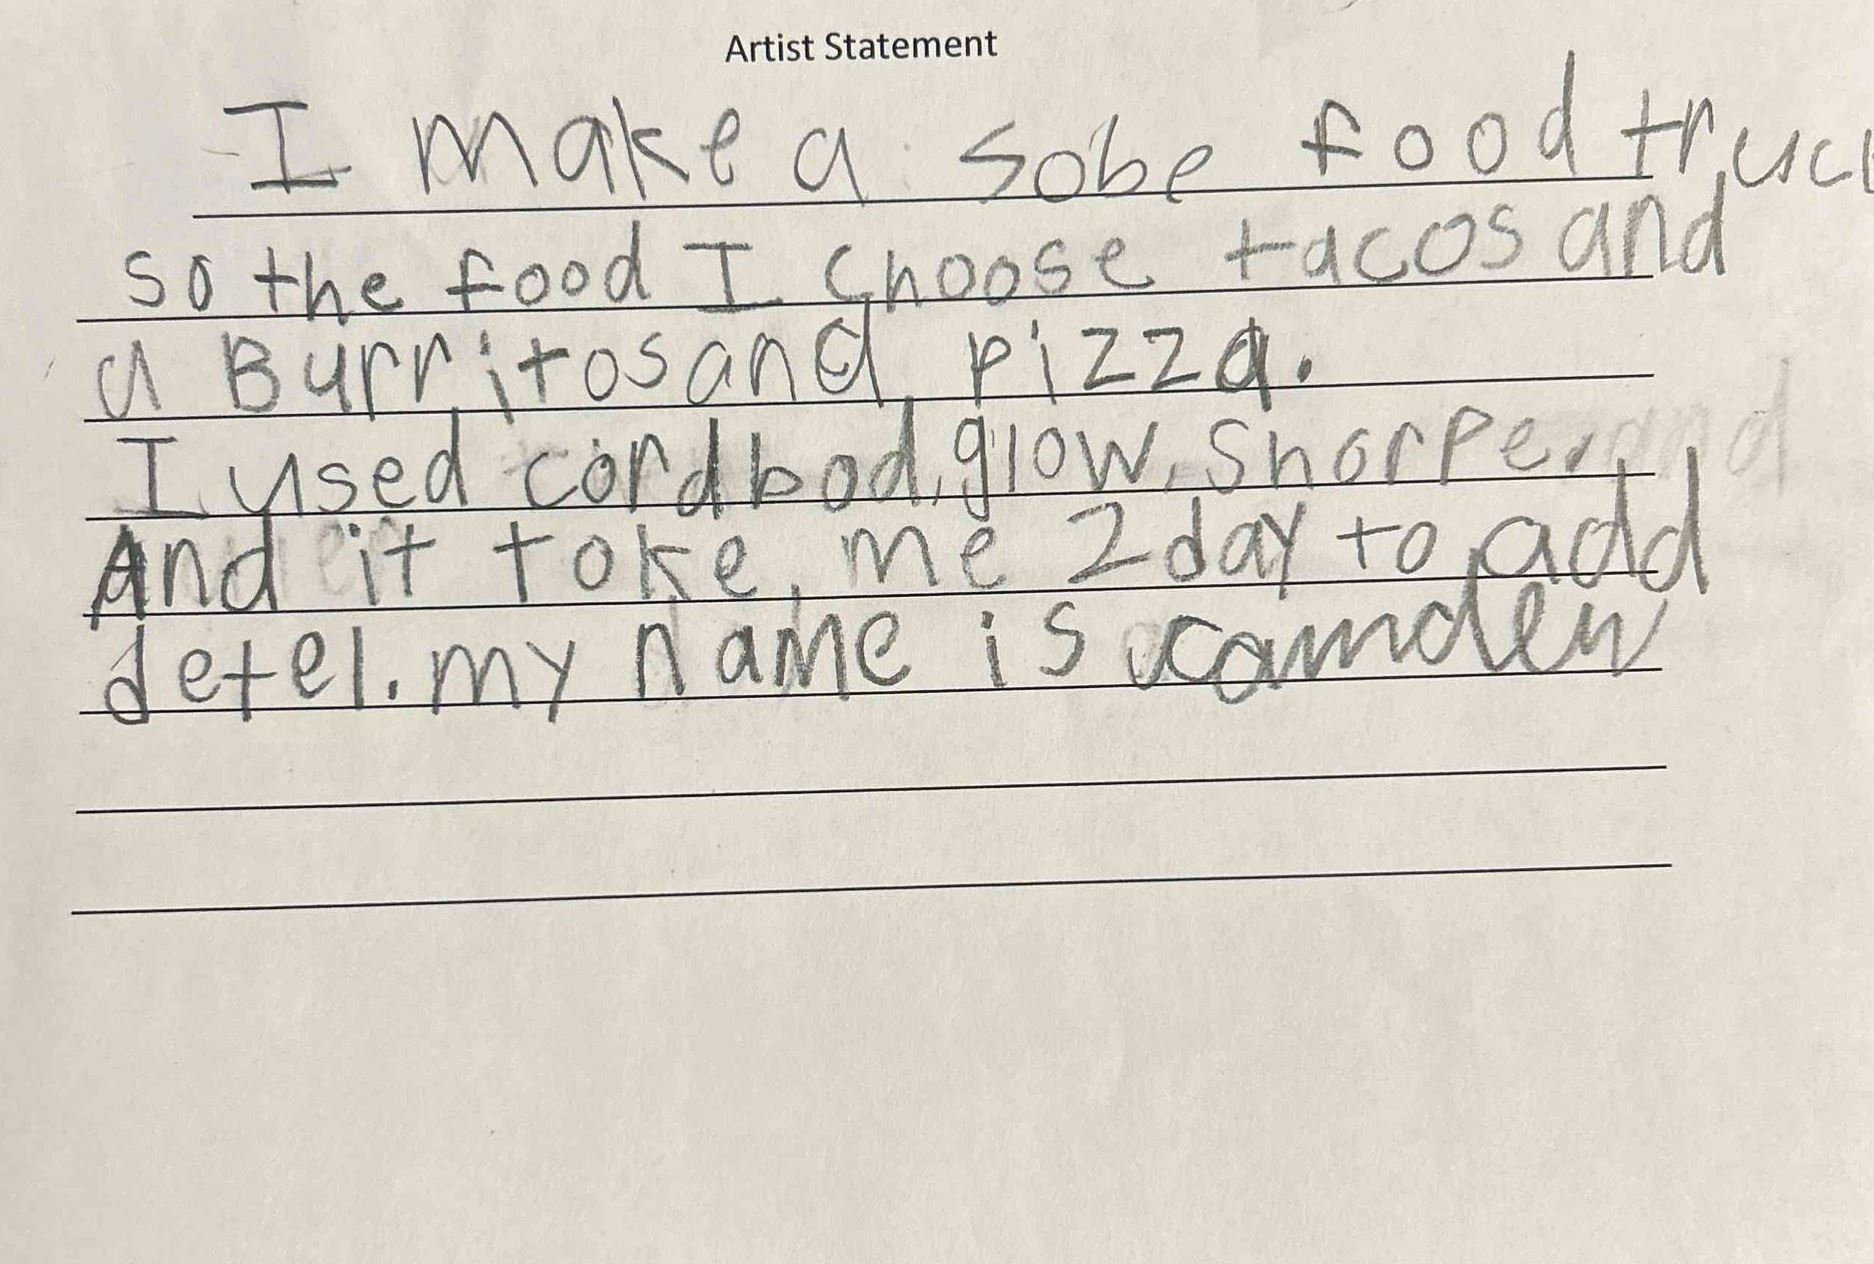 Artist Statement
I make a sobe food truck
so the food I choose tacos and
a Burritos and pizza.
I used cordbod, glow, shorpe,
And it toke, me 2 day to add
detel. my name is camden